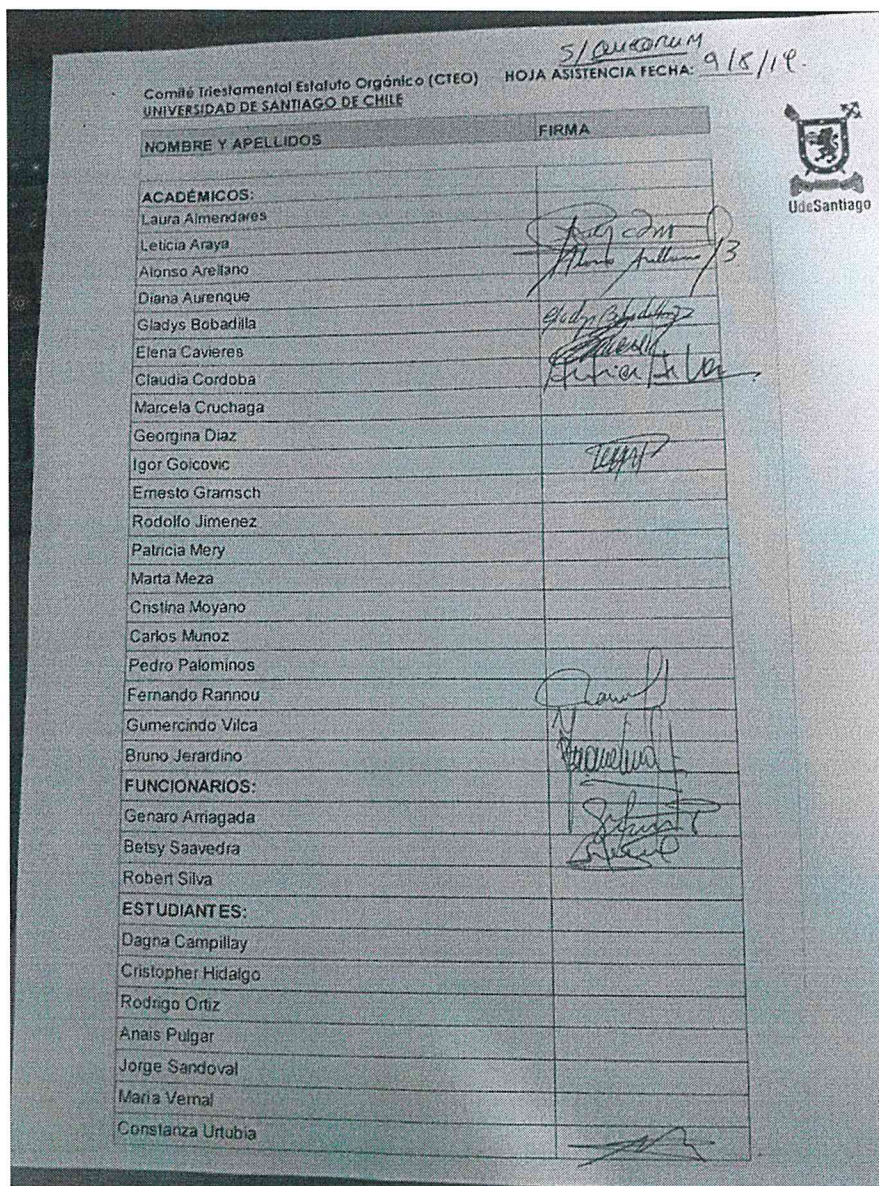 S/ QUORUM
Comité Triestamental Estatuto Orgánico (CTEO) HOJA ASISTENCIA FECHA: 9/8/19.
UNIVERSIDAD DE SANTIAGO DE CHILE
NOMBRE Y APELLIDOS FIRMA
UdeSantiago
ACADÉMICOS:
Laura Almendares
Leticia Araya
Alonso Arellano Alonso Arellano
Diana Aurenque
Gladys Bobadilla Gladys Bobadilla
Elena Cavieres
Claudia Cordoba
Marcela Cruchaga
Georgina Diaz
Igor Goicovic
Ernesto Gramsch
Rodolfo Jimenez
Patricia Mery
Marta Meza
Cristina Moyano
Carlos Munoz
Pedro Palominos
Fernando Rannou
Gumercindo Vilca
Bruno Jerardino
FUNCIONARIOS:
Genaro Arriagada
Betsy Saavedra
Robert Silva
ESTUDIANTES:
Dagna Campillay
Cristopher Hidalgo
Rodrigo Ortiz
Anais Pulgar
Jorge Sandoval
Maria Vernal
Constanza Urtubia